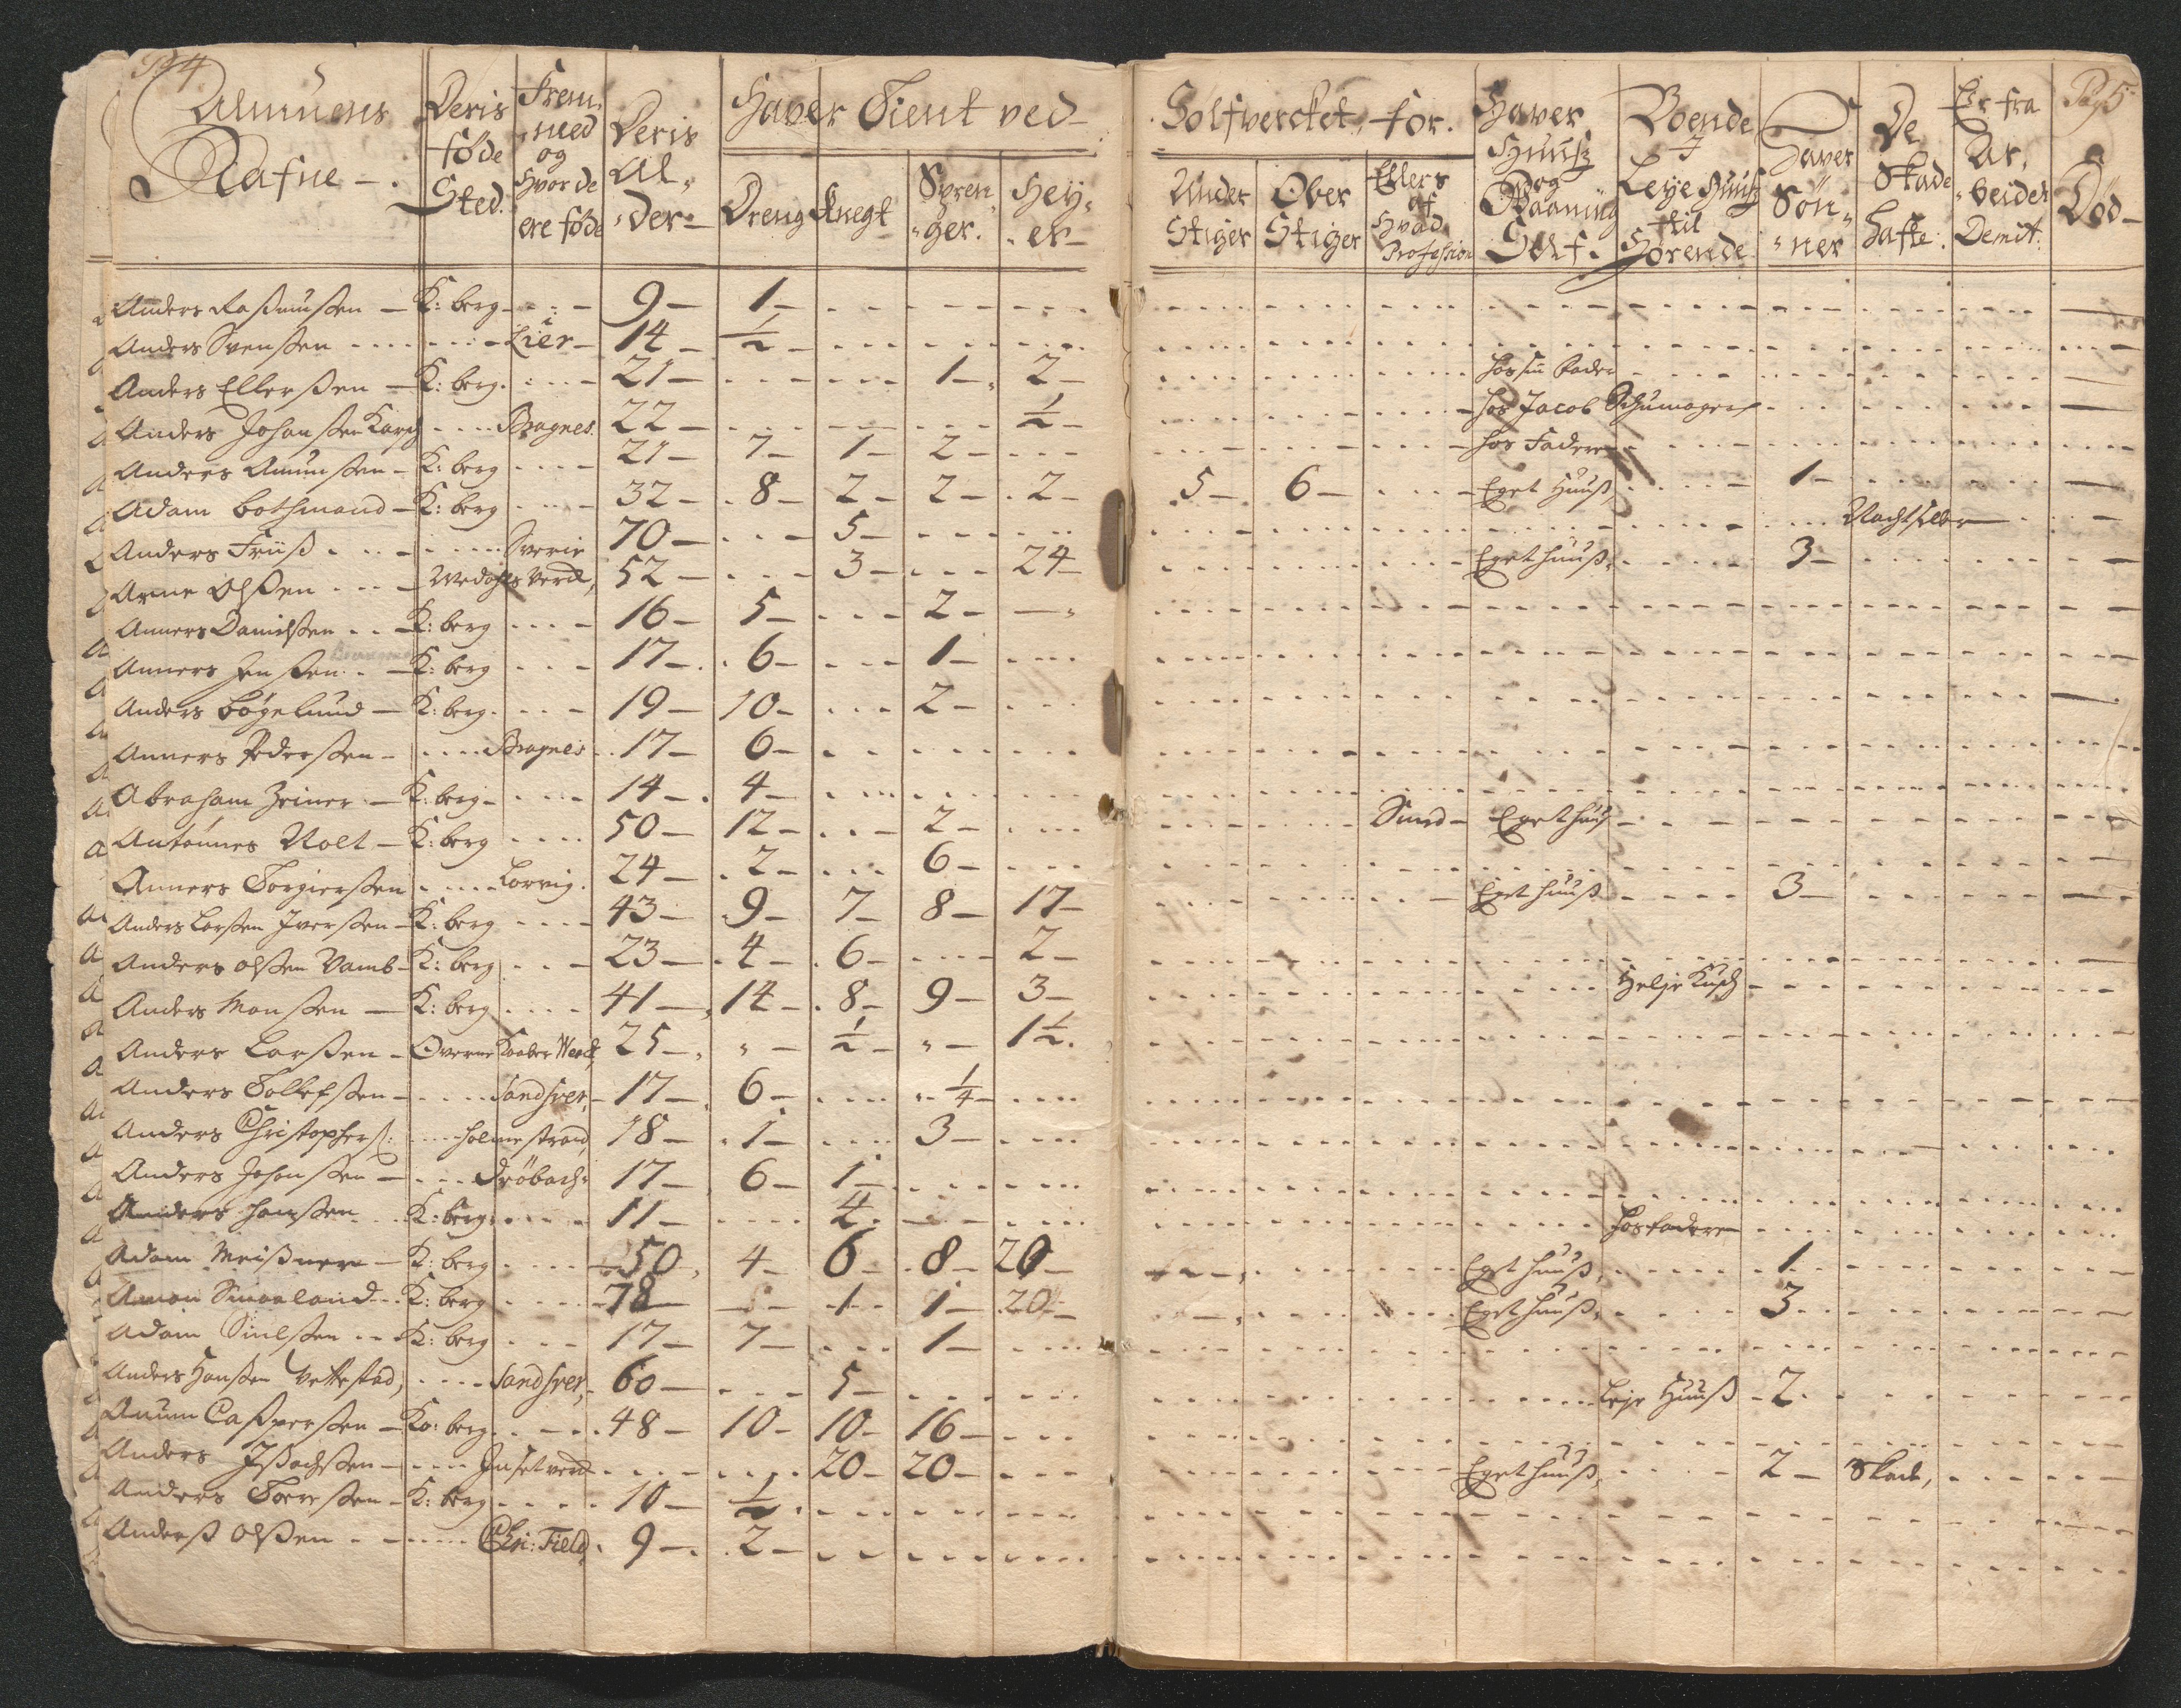 Almuens Nafne -.
Deris föde Sted.
Frem, med og Hvor de ere föde
Deris Al, der -
Haver Tient ved
Dreng
Knegt
Spren, ger.
Hey, er -
Sölfvercket, for.
Pag 5
Under Stiger
Ober Stiger
Ellers af Hvad Profession
Haver Huuß og Vaaning Self.
Boende I Leye Huuß til Hörende
Haver Sön, ner
De Skade Hafte.
Er fra Ar, beidet Demit.
Död -
Anders Raßmusßen - K: berg - 9 - 1 -
Anders Svenßen - Lier - 14 - ½ -
Anders Ellerßen - K: berg. - 21 - 1 - 2 - hos sin Fader
Anders Johanßen - Bragnes. 22 - ½ - hos Jacob Schumager
Anders Amunßen - K: berg - 21 - 7 - 1 - 2 - hos Faderen
Adam Bothmand - K: berg - 32 - 8 - 2 - 2 - 2 - 5 - 6 - Eget Huuß, 1 -
Anders Friiß - Sverie 70 - 5 - Nachtsetter
Arne Olßen - Verck, 52 - 3 - 24 - Eget huuß, 3 -
Anners Danielßen - K: berg - 16 - 5 - 2 -
Anners Jenßen - K: berg - 17 - 6 - 1 -
Anders Bögelund - K: berg. - 19 - 10 - 2 -
Anners Pederßen - Bragnes 17 - 6 -
Abraham Zeiner - K: berg - 14 - 4 -
Antonnes Nolt - K: berg - 50 - 12 - 2 - Smed - Eget huuß
Anners Torgierßen - Lorvig. 24 - 2 - 6 -
Anders Larßen Iverßen - K: berg - 43 - 9 - 7 - 8 - 17 - Eget huuß 3 -
Anders Olßen Vamb - K: berg - 23 - 4 - 6 - 2 -
Anders Monßen - K: berg - 41 - 14 - 8 - 9 - 3 - Helje
Anders Larßen - Overne Kaaber Werck, 25 - „ - ½ - „ - 1½.
Anders Tollefßen - Sandsver, - 17 - 6 - ¼ -
Anders Christophers: - Holmestrand, 18 - 1 - 3 -
Anders Johanßen - Dröbach: 17 - 6 - 1 -
Anders Hanßen - K: berg: - 11 - 4. - hos Faderen
Adam Meißner - K: berg - 50, 4 - 6 - 8 - 20 - Eget huuß, 1 -
Amon Smaaland - K: berg - 78 - 1 - 1 - 20 - Eget huuß, 3 -
Adam Siulßen - K: berg - 17 - 7 - 1 -
Anders Hanßen Vettestad, - Sandsver, - 60 - 5 - Leje Huuß - 2 -
Amun Casperßen - Ko: berg - 48 - 10 - 10 - 16 -
Anders Ißachßen - 20 - 20 - Eget huuß, 2 - Skade,
Anders Torreßen - K: berg - 10 - ½ -
Anderß Olßen - Chri: Field, 9 - 2 -